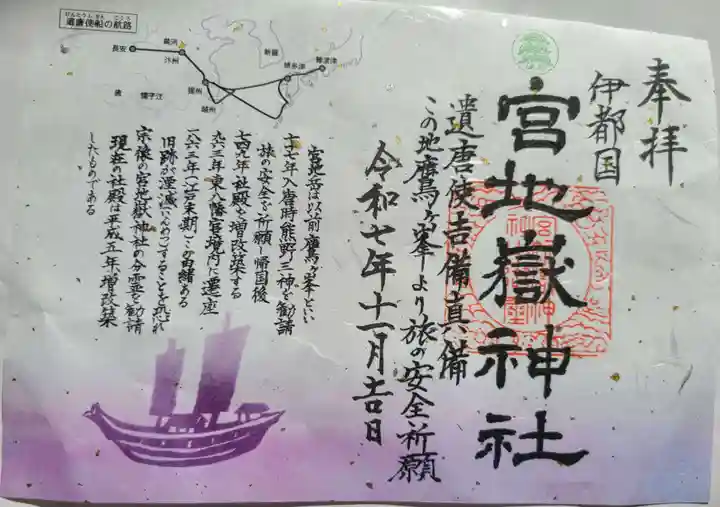 奉拝
伊都国
宮地嶽神社
遣唐使吉備真備
この地鷹ヶ峯より旅の安全祈願
令和七年十一月吉日
けんとうしせん こうろ
遣唐使船の航路
長安
黄河
汴州
揚州
越州
唐
揚子江
新羅
博多津
難波津
宮地岳は以前鷹ヶ峯といい
七一七年入唐時熊野三神を勧請
旅の安全を祈願し帰国後
七四九年社殿を増改築する
九六三年東八幡宮境内に遷座
一八六三年(江戸末期)この由緒ある
旧跡が湮滅になりつつすることを恐れ
宗像の宮地嶽神社の分霊を勧請
現在の社殿は平成五年増改築
したものである